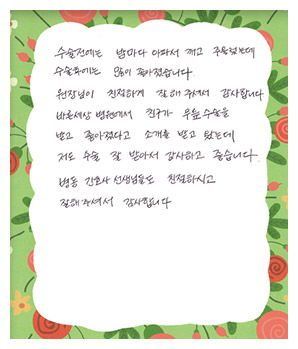 수술전에는 밤마다 아파서 깨고 주물렀는데
수술후에는 많이 좋아졌습니다
원장님이 친절하게 잘해 주셔서 감사합니다
바른세상 병원에서 친구가 무릎수술을
받고 좋아졌다고 소개를 받고 왔는데
저도 수술 잘 받아서 감사하고 좋습니다.
병동 간호사 선생님들도 친절하시고
잘해주셔서 감사합니다